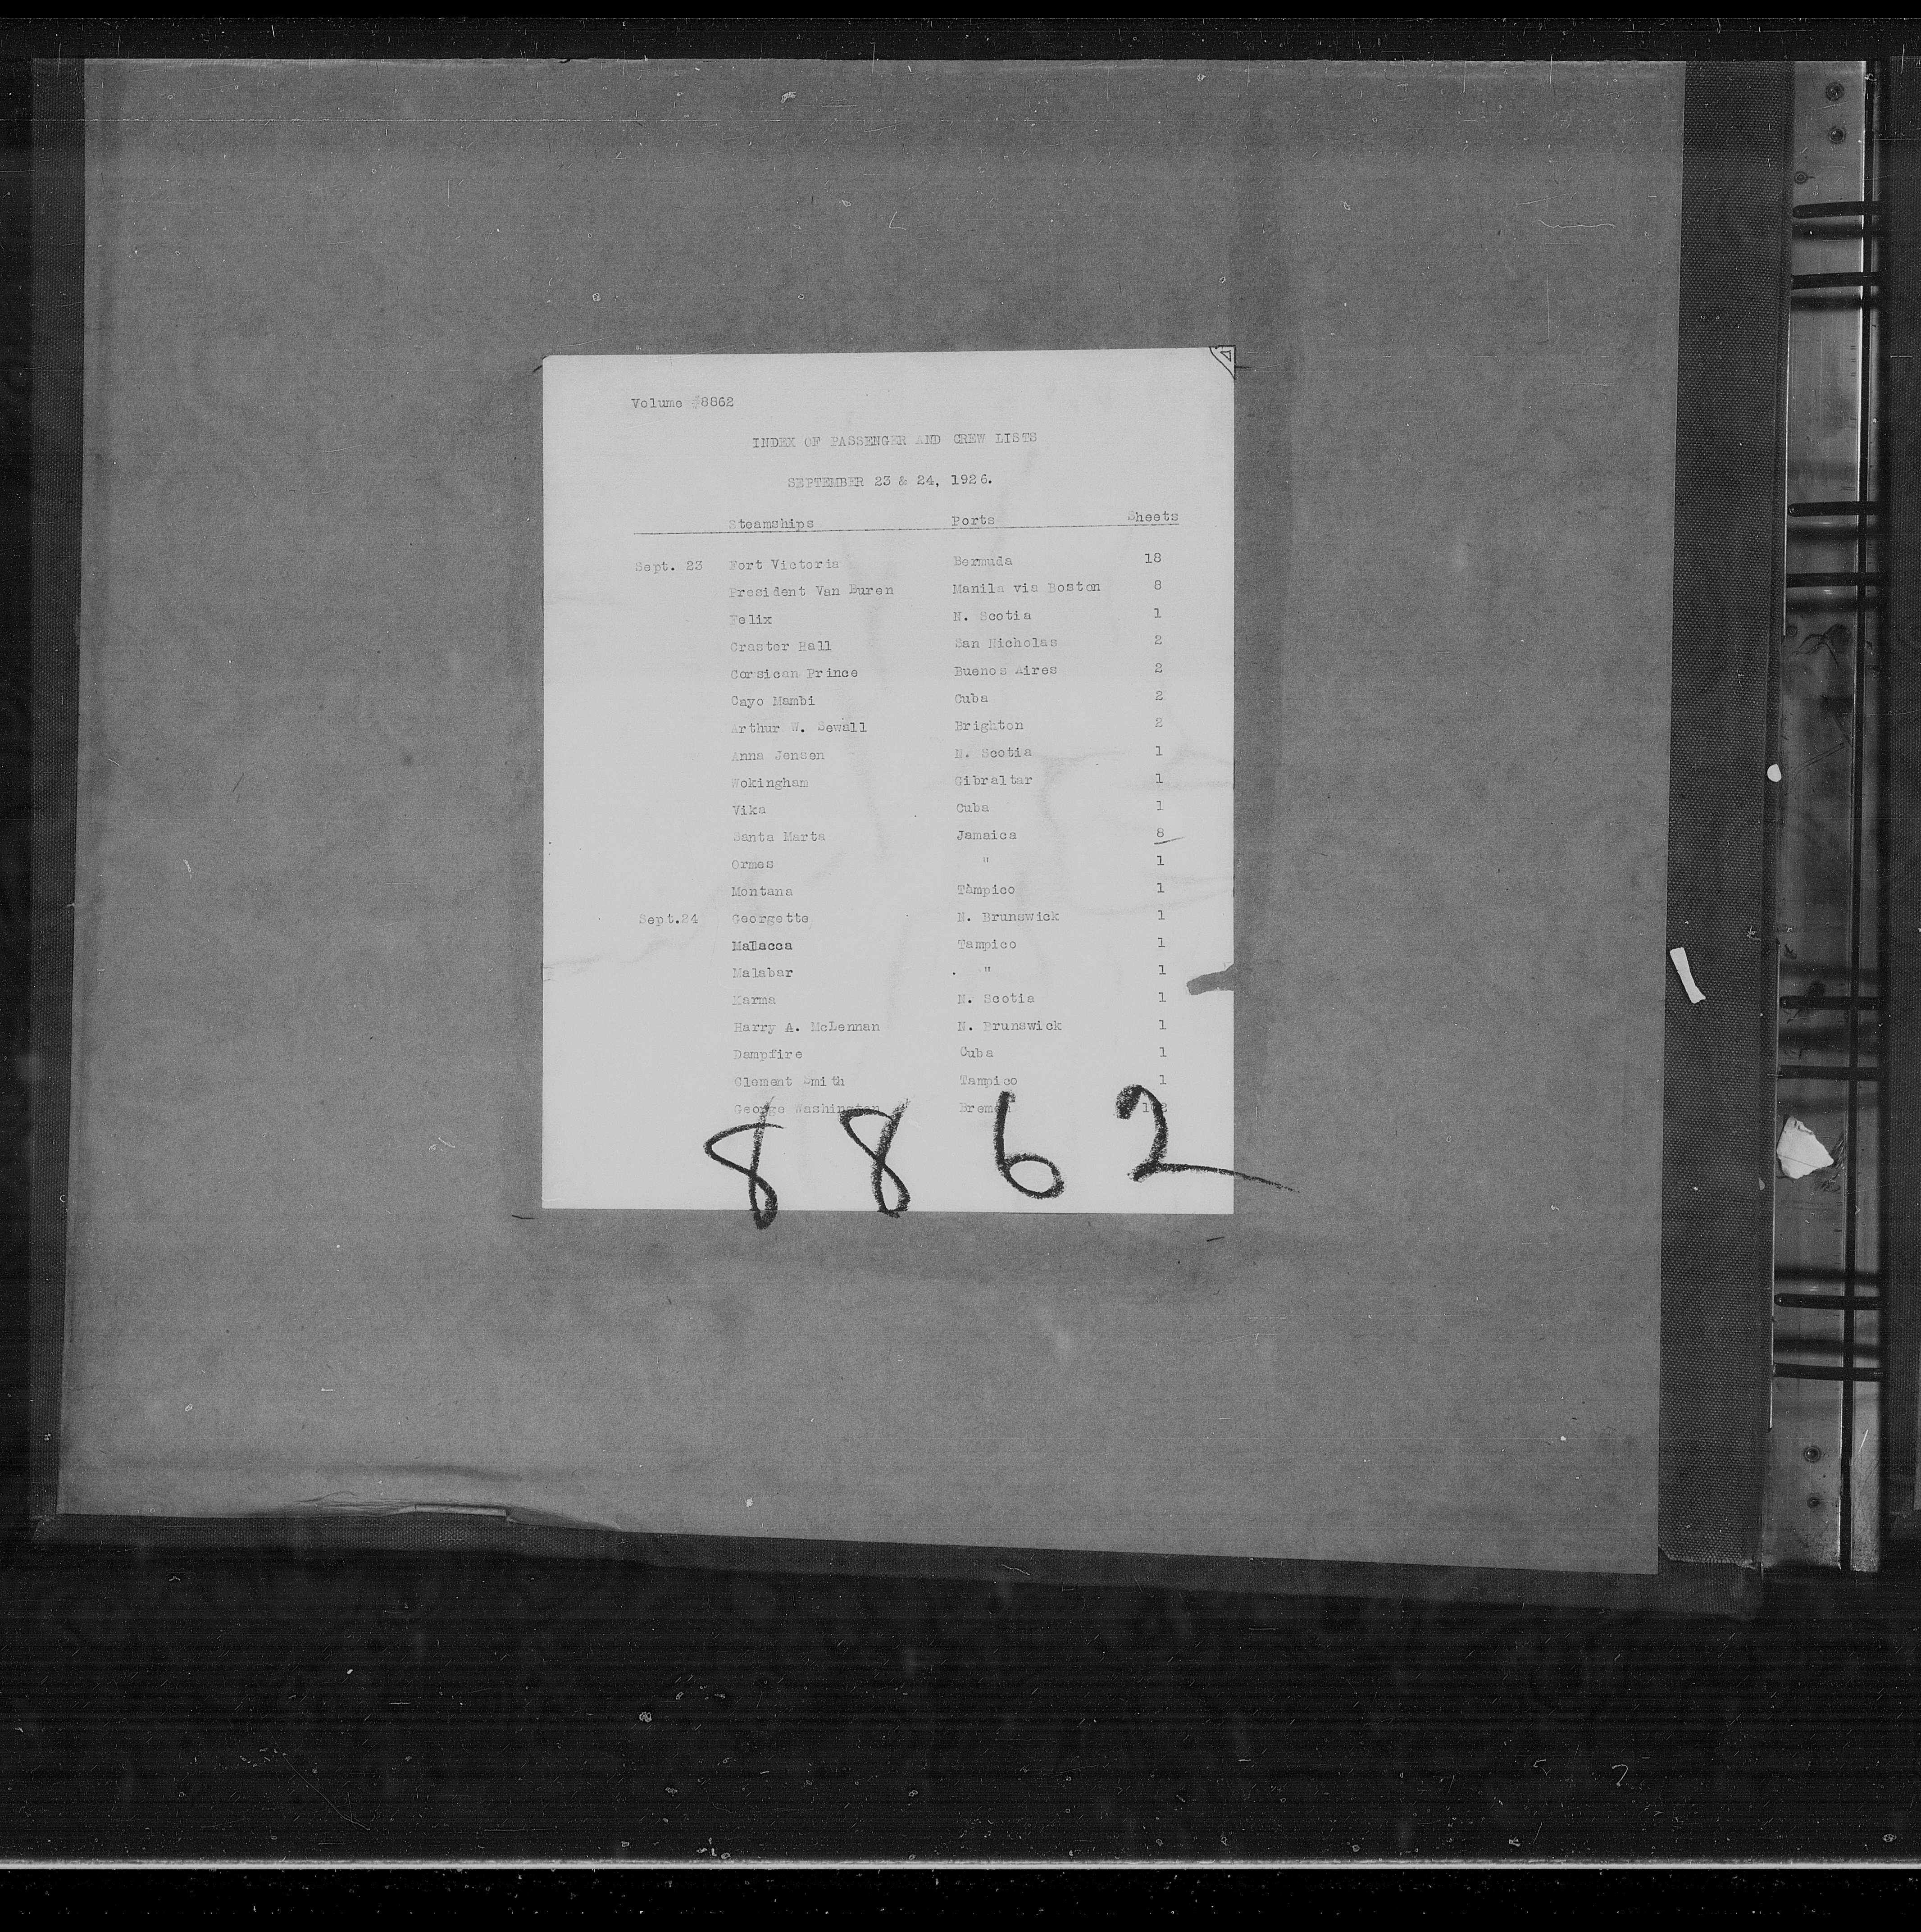 Volume #8862
INDEX OF PASSENGER AND CREW LISTS
SEPTEMBER 23 & 24, 1926.
Steamships Ports Sheets
Sept. 23 Fort Victoria Bermuda 18
President Van Buren Manila via Boston 8
Felix N. Scotia 1
Craster Hall San Nicholas 2
Corsican Prince Buenos Aires 2
Cayo Mambi Cuba 2
Arthur W. Sewall Brighton 2
Anna Jensen N. Scotia 1
Wokingham Gibraltar 1
Vika Cuba 1
Santa Marta Jamaica 8
Ormes " 1
Montana Tampico 1
Sept.24 Georgette N. Brunswick 1
Malacca Tampico 1
Malabar " 1
Karma N. Scotia 1
Harry A. McLennan N. Brunswick 1
Dampfire Cuba 1
Clement Smith Tampico 1
George Washington Bremen
8862